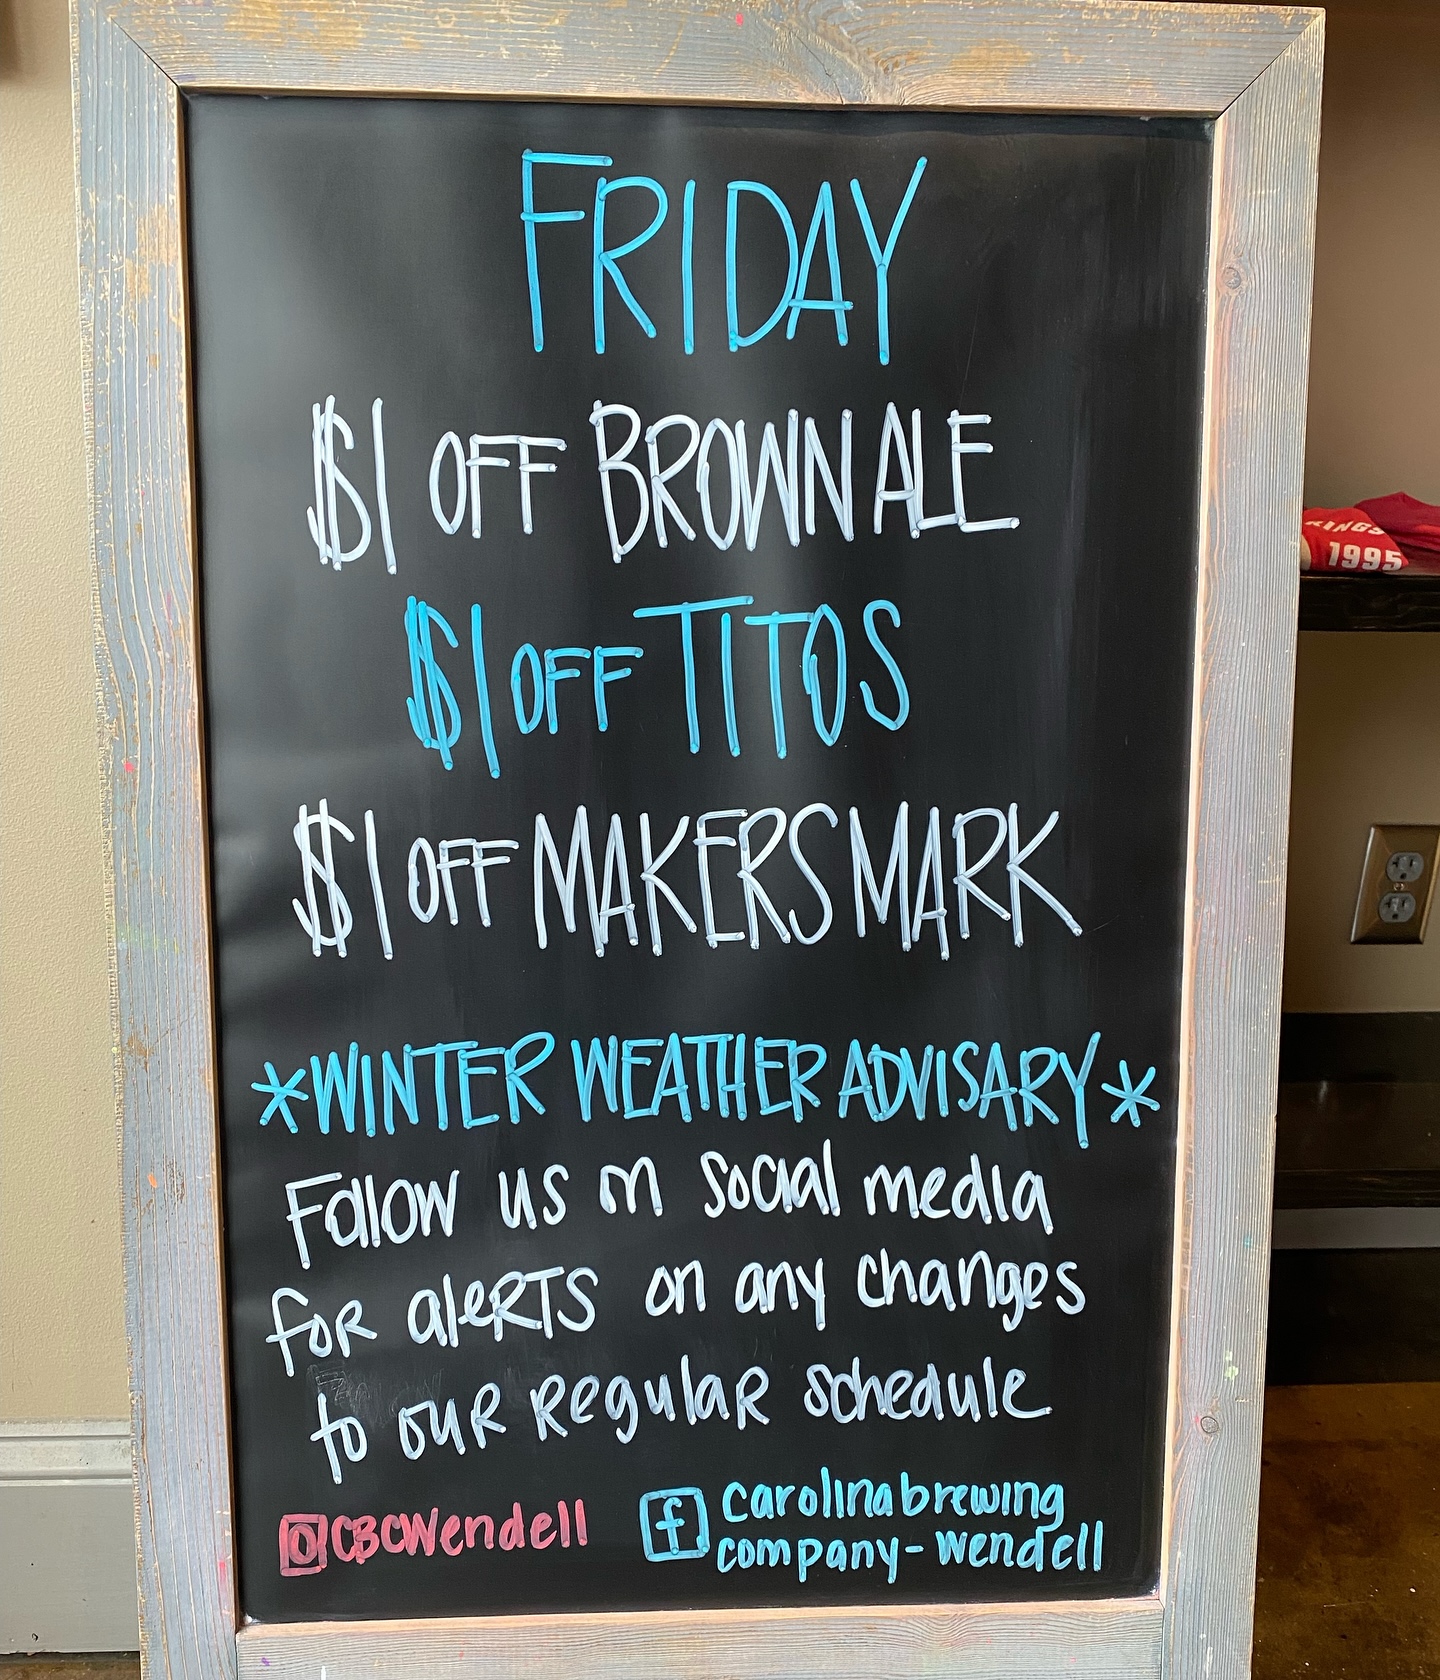 FRIDAY
$1 OFF BROWN ALE
$1 OFF TITOS
$1 OFF MAKERS MARK
*WINTER WEATHER ADVISARY*
Follow us on social media
for aleRTS on any changes
to ouR RegulaR schedule
CBCWendell
carolina brewing
company-Wendell
KINGS
1995